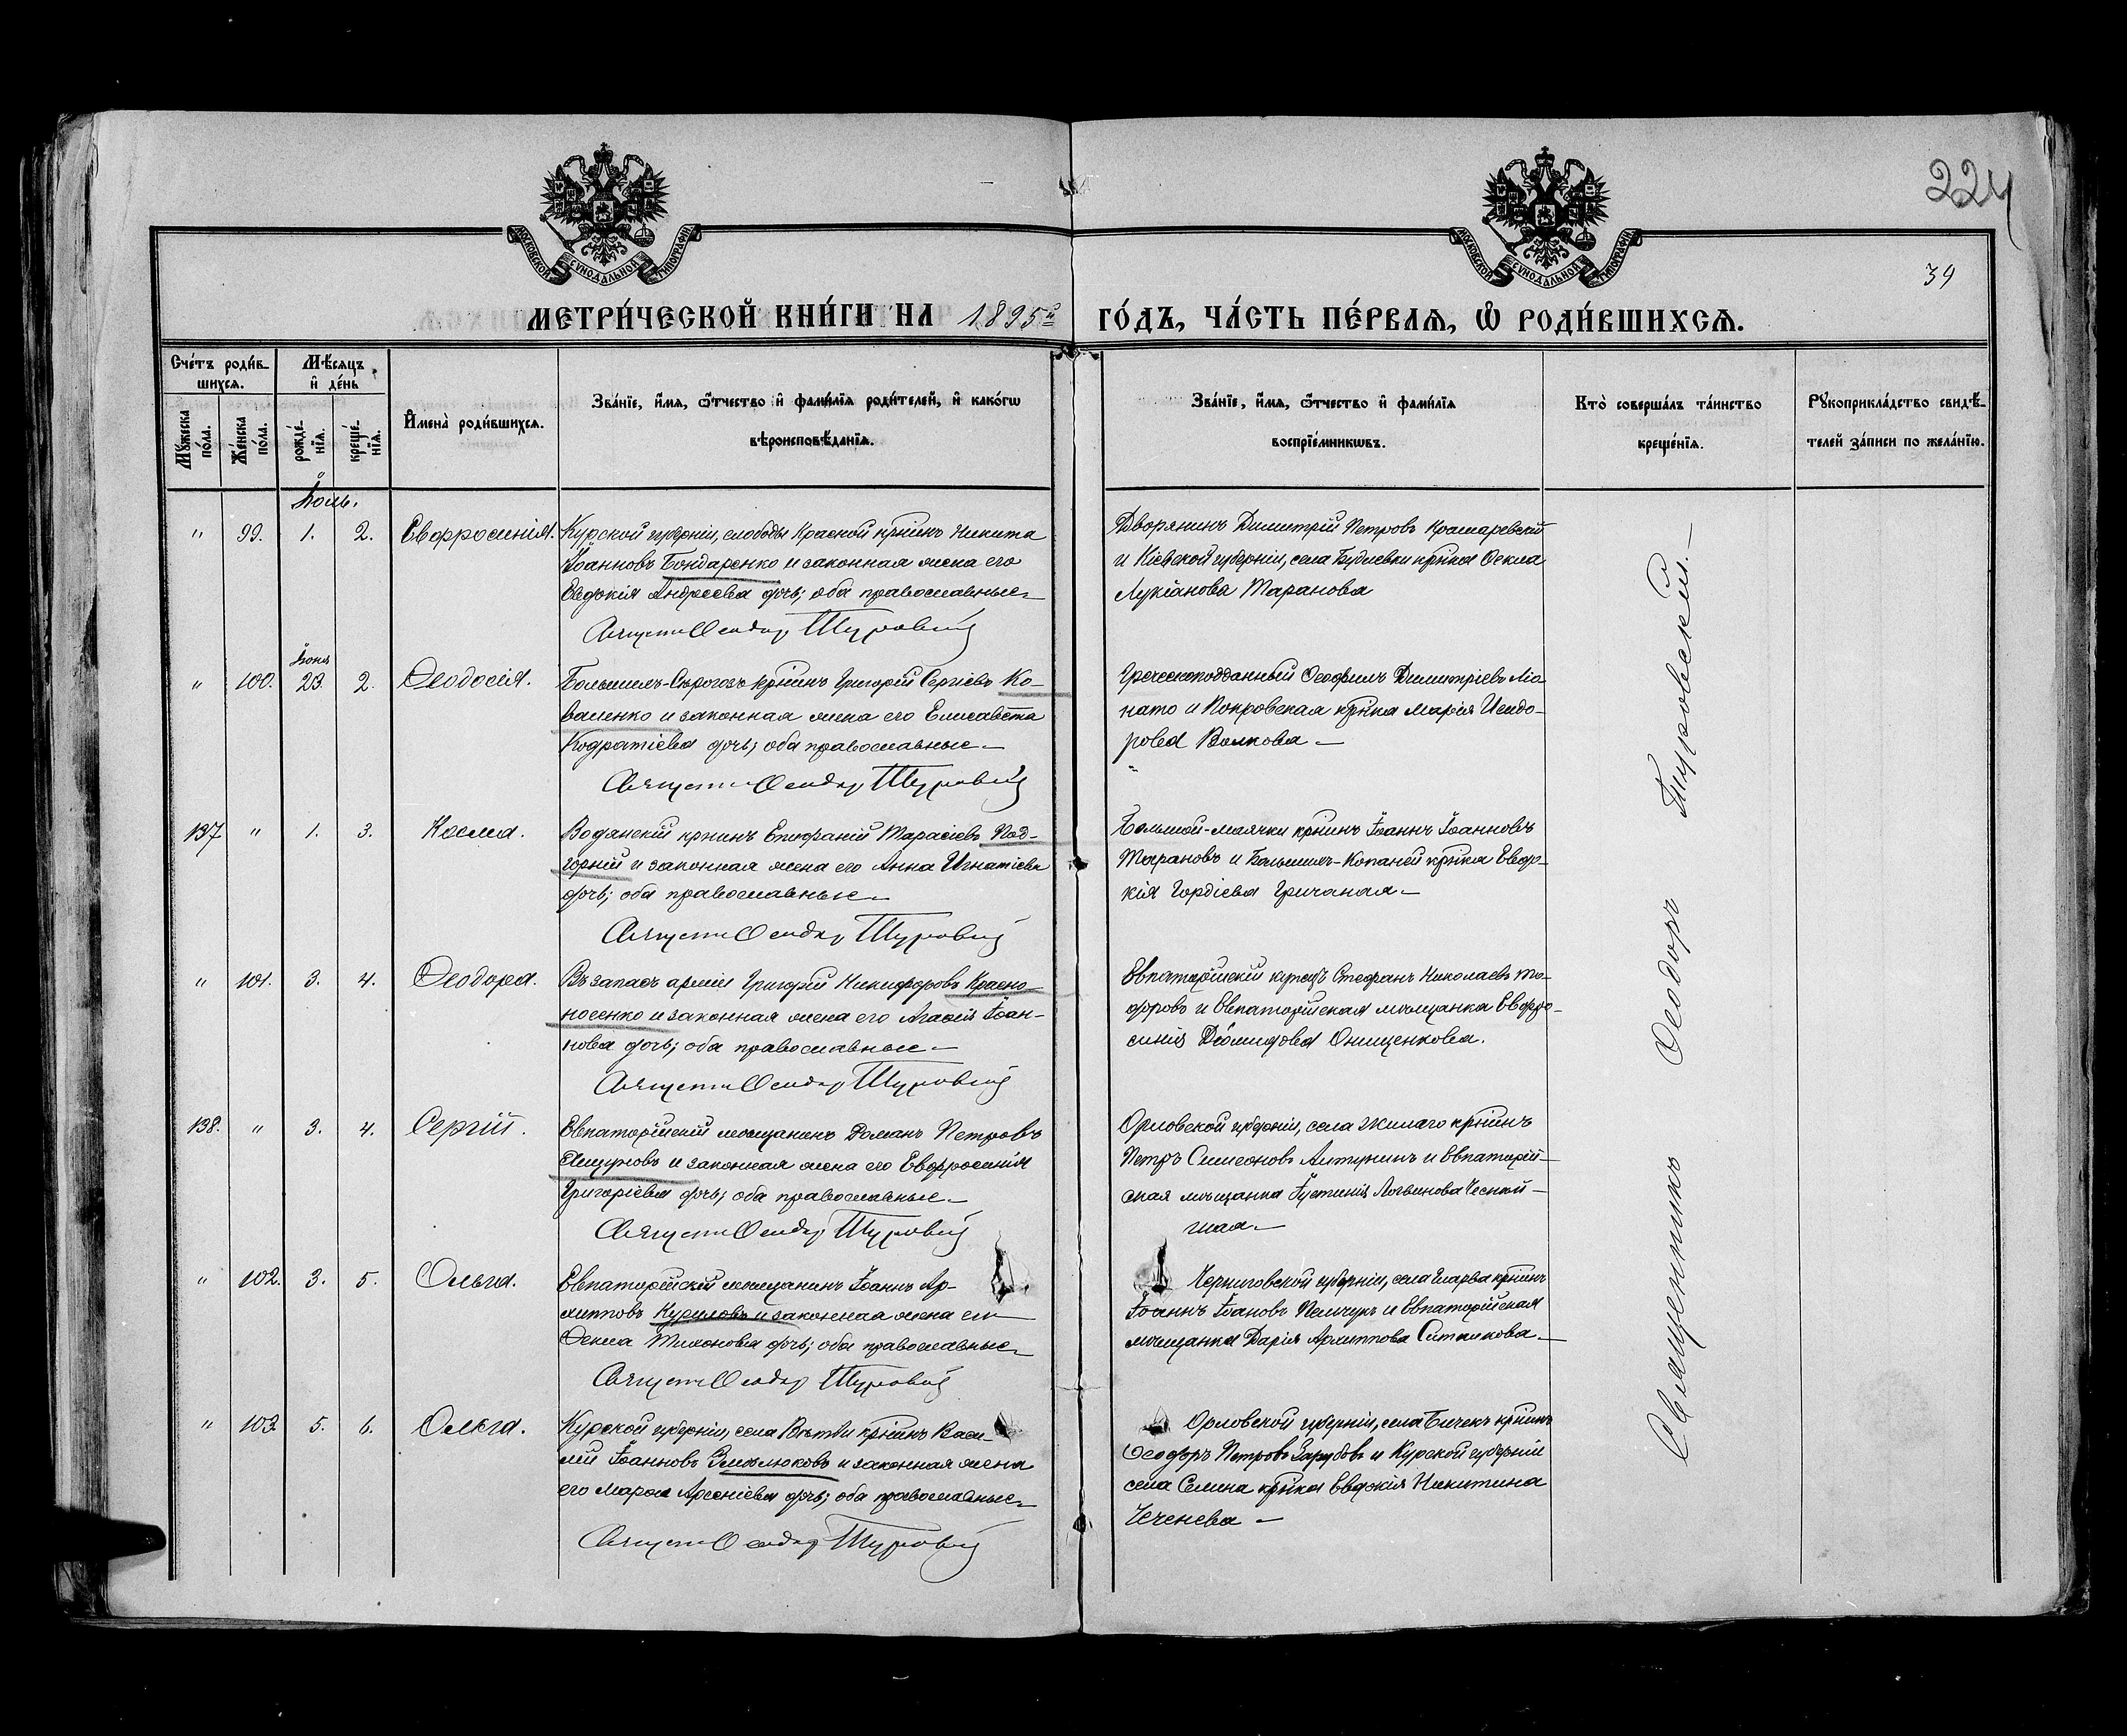 224
39
МОСКОВСКОЙ СѴНОДАЛЬНОЙ ТИПОГРАФІИ
МОСКОВСКОЙ СѴНОДАЛЬНОЙ ТИПОГРАФІИ
МЕТРИ́ЧЕСКОЙ КНИ́ГИ НА 1895й ГО́ДЪ, ЧА́СТЬ ПЕ́РВАѦ, Ѡ҆ РОДИ́ВШИХСѦ.
Сче́тъ роди́в-
шихсѧ.
Мꙋжеска по́ла.
Же́нска по́ла.
Мѣ́сѧцъ
и҆ де́нь
рожде́-
нїѧ.
креще́-
нїѧ.
И҆мена̀ роди́вшихсѧ.
Зва́нїе, и҆́мѧ, ѻ҆́тчество и҆ фами́лїѧ роди́телей, и҆ како́гѡ
вѣроисповѣ́данїѧ.
Зва́нїе, и҆́мѧ, ѻ҆́тчество и҆ фами́лїѧ
воспрїе́мникѡвъ.
Кто̀ соверша́лъ та́инство
креще́нїѧ.
Рꙋкоприкла́дство свидѣ́-
телей за́писи по жела́нїю.
Іюль.
" 99. 1. 2. Евфросинія.
Курской губерніи, слободы Красной кр̃нинъ Никита
Іоанновъ Бондаренко и законная жена его
Евдокія Андреева дочь; оба православные
Священ Ѳеодор Туровскій
Дворянинъ Димитрій Петровъ Крамаревскій
и Кіевской губерніи, села Будиевки кр̃нка Ѳекла
Лукіанова Таранова
Іюня
" 100. 23. 2. Ѳеодосія.
Большихъ-Сырогозъ кр̃нинъ Григорій Сергіевъ Ко-
валенко и законная жена его Елисавета
Кодратіева дочь; оба православные
Священ Ѳеодор Туровскій
Греческоподданный Ѳеофилъ Димитріевъ Мо-
нато и Покровская кр̃нка Марія Исидо-
рова Волкова
"
137 " 1. 3. Косма.
Водянскій кр̃нинъ Епифаній Тарасіевъ Под-
горній и законная жена его Анна Игнатіева
дочь; оба православные
Священ Ѳеодор Туровскій
Большой-маячки кр̃нинъ Іоаннъ Іоанновъ
Тарановъ и Большихъ-Копаней кр̃нка Евдо-
кія Гордіева Гричаная
" 101. 3. 4. Ѳеодора.
Въ запасѣ арміи Григорій Никифоровъ Красно-
носенко и законная жена его Агафія Іоан-
нова дочь; оба православные
Священ Ѳеодор Туровскій
Евпаторійскій купецъ Стефанъ Николаевъ То-
доровъ и Евпаторійская мѣщанка Евфро-
синія Діомидова Онищенкова.
138. " 3. 4. Сергій.
Евпаторійскій мѣщанинъ Романъ Петровъ
и законная жена его Евфросинія
Григоріева дочь; оба православные
Священ Ѳеодор Туровскій
Орловской губерніи, села Жилаго кр̃нинъ
Петръ Симеоновъ Алтунинъ и Евпаторій-
ская мѣщанка Іустинія Логвинова

" 102. 3. 5. Ольга.
Евпаторійскій мѣщанинъ Іоаннъ Ар-
хипповъ Куриловъ и законная жена его
Ѳекла Тихонова дочь; оба православные
Священ Ѳеодор Туровскій
Черниговской губерніи, села кр̃нинъ
Іоаннъ Іоановъ Пемчукъ и Евпаторійская
мѣщанка Дарія Архиппова Ситникова
" 103. 5. 6. Ольга.
Курской губерніи, села кр̃нинъ Васи-
лій Іоанновъ и законная жена
его Марфа Арсеніева дочь; оба православные
Священ Ѳеодор Туровскій
Орловской губерніи, села кр̃нинъ
Ѳеодоръ Петровъ Зарубовъ и Курской губерніи
села Селина кр̃нка Евдокія Никитина
Чеченева
Священникъ Ѳеодоръ Туровскій.